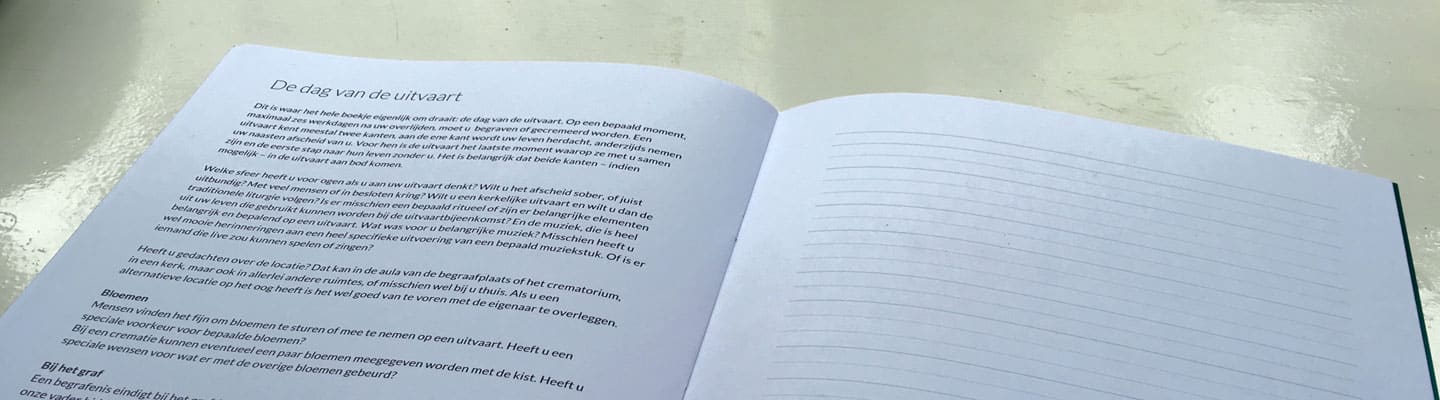 De dag van de uitvaart
Dit is waar het hele boekje eigenlijk om draait: de dag van de uitvaart. Op een bepaald moment,
maximaal zes werkdagen na uw overlijden, moet u begraven of gecremeerd worden. Een
uitvaart kent meestal twee kanten, aan de ene kant wordt uw leven herdacht, anderzijds nemen
uw naasten afscheid van u. Voor hen is de uitvaart het laatste moment waarop ze met u samen
zijn en de eerste stap naar hun leven zonder u. Het is belangrijk dat beide kanten – indien
mogelijk – in de uitvaart aan bod komen.
Welke sfeer heeft u voor ogen als u aan uw uitvaart denkt? Wilt u het afscheid sober, of juist
uitbundig? Met veel mensen of in besloten kring? Wilt u een kerkelijke uitvaart en wilt u dan de
traditionele liturgie volgen? Is er misschien een bepaald ritueel of zijn er belangrijke elementen
uit uw leven die gebruikt kunnen worden bij de uitvaartbijeenkomst? En de muziek, die is heel
belangrijk en bepalend op een uitvaart. Wat was voor u belangrijke muziek? Misschien heeft u
wel mooie herinneringen aan een heel specifieke uitvoering van een bepaald muziekstuk. Of is er
iemand die live zou kunnen spelen of zingen?
Heeft u gedachten over de locatie? Dat kan in de aula van de begraafplaats of het crematorium,
in een kerk, maar ook in allerlei andere ruimtes, of misschien wel bij u thuis. Als u een
alternatieve locatie op het oog heeft is het wel goed van te voren met de eigenaar te overleggen.
Bloemen
Mensen vinden het fijn om bloemen te sturen of mee te nemen op een uitvaart. Heeft u een
speciale voorkeur voor bepaalde bloemen?
Bij een crematie kunnen eventueel een paar bloemen meegegeven worden met de kist. Heeft u
speciale wensen voor wat er met de overige bloemen gebeurd?
Bij het graf
Een begrafenis eindigt bij het
onze vader